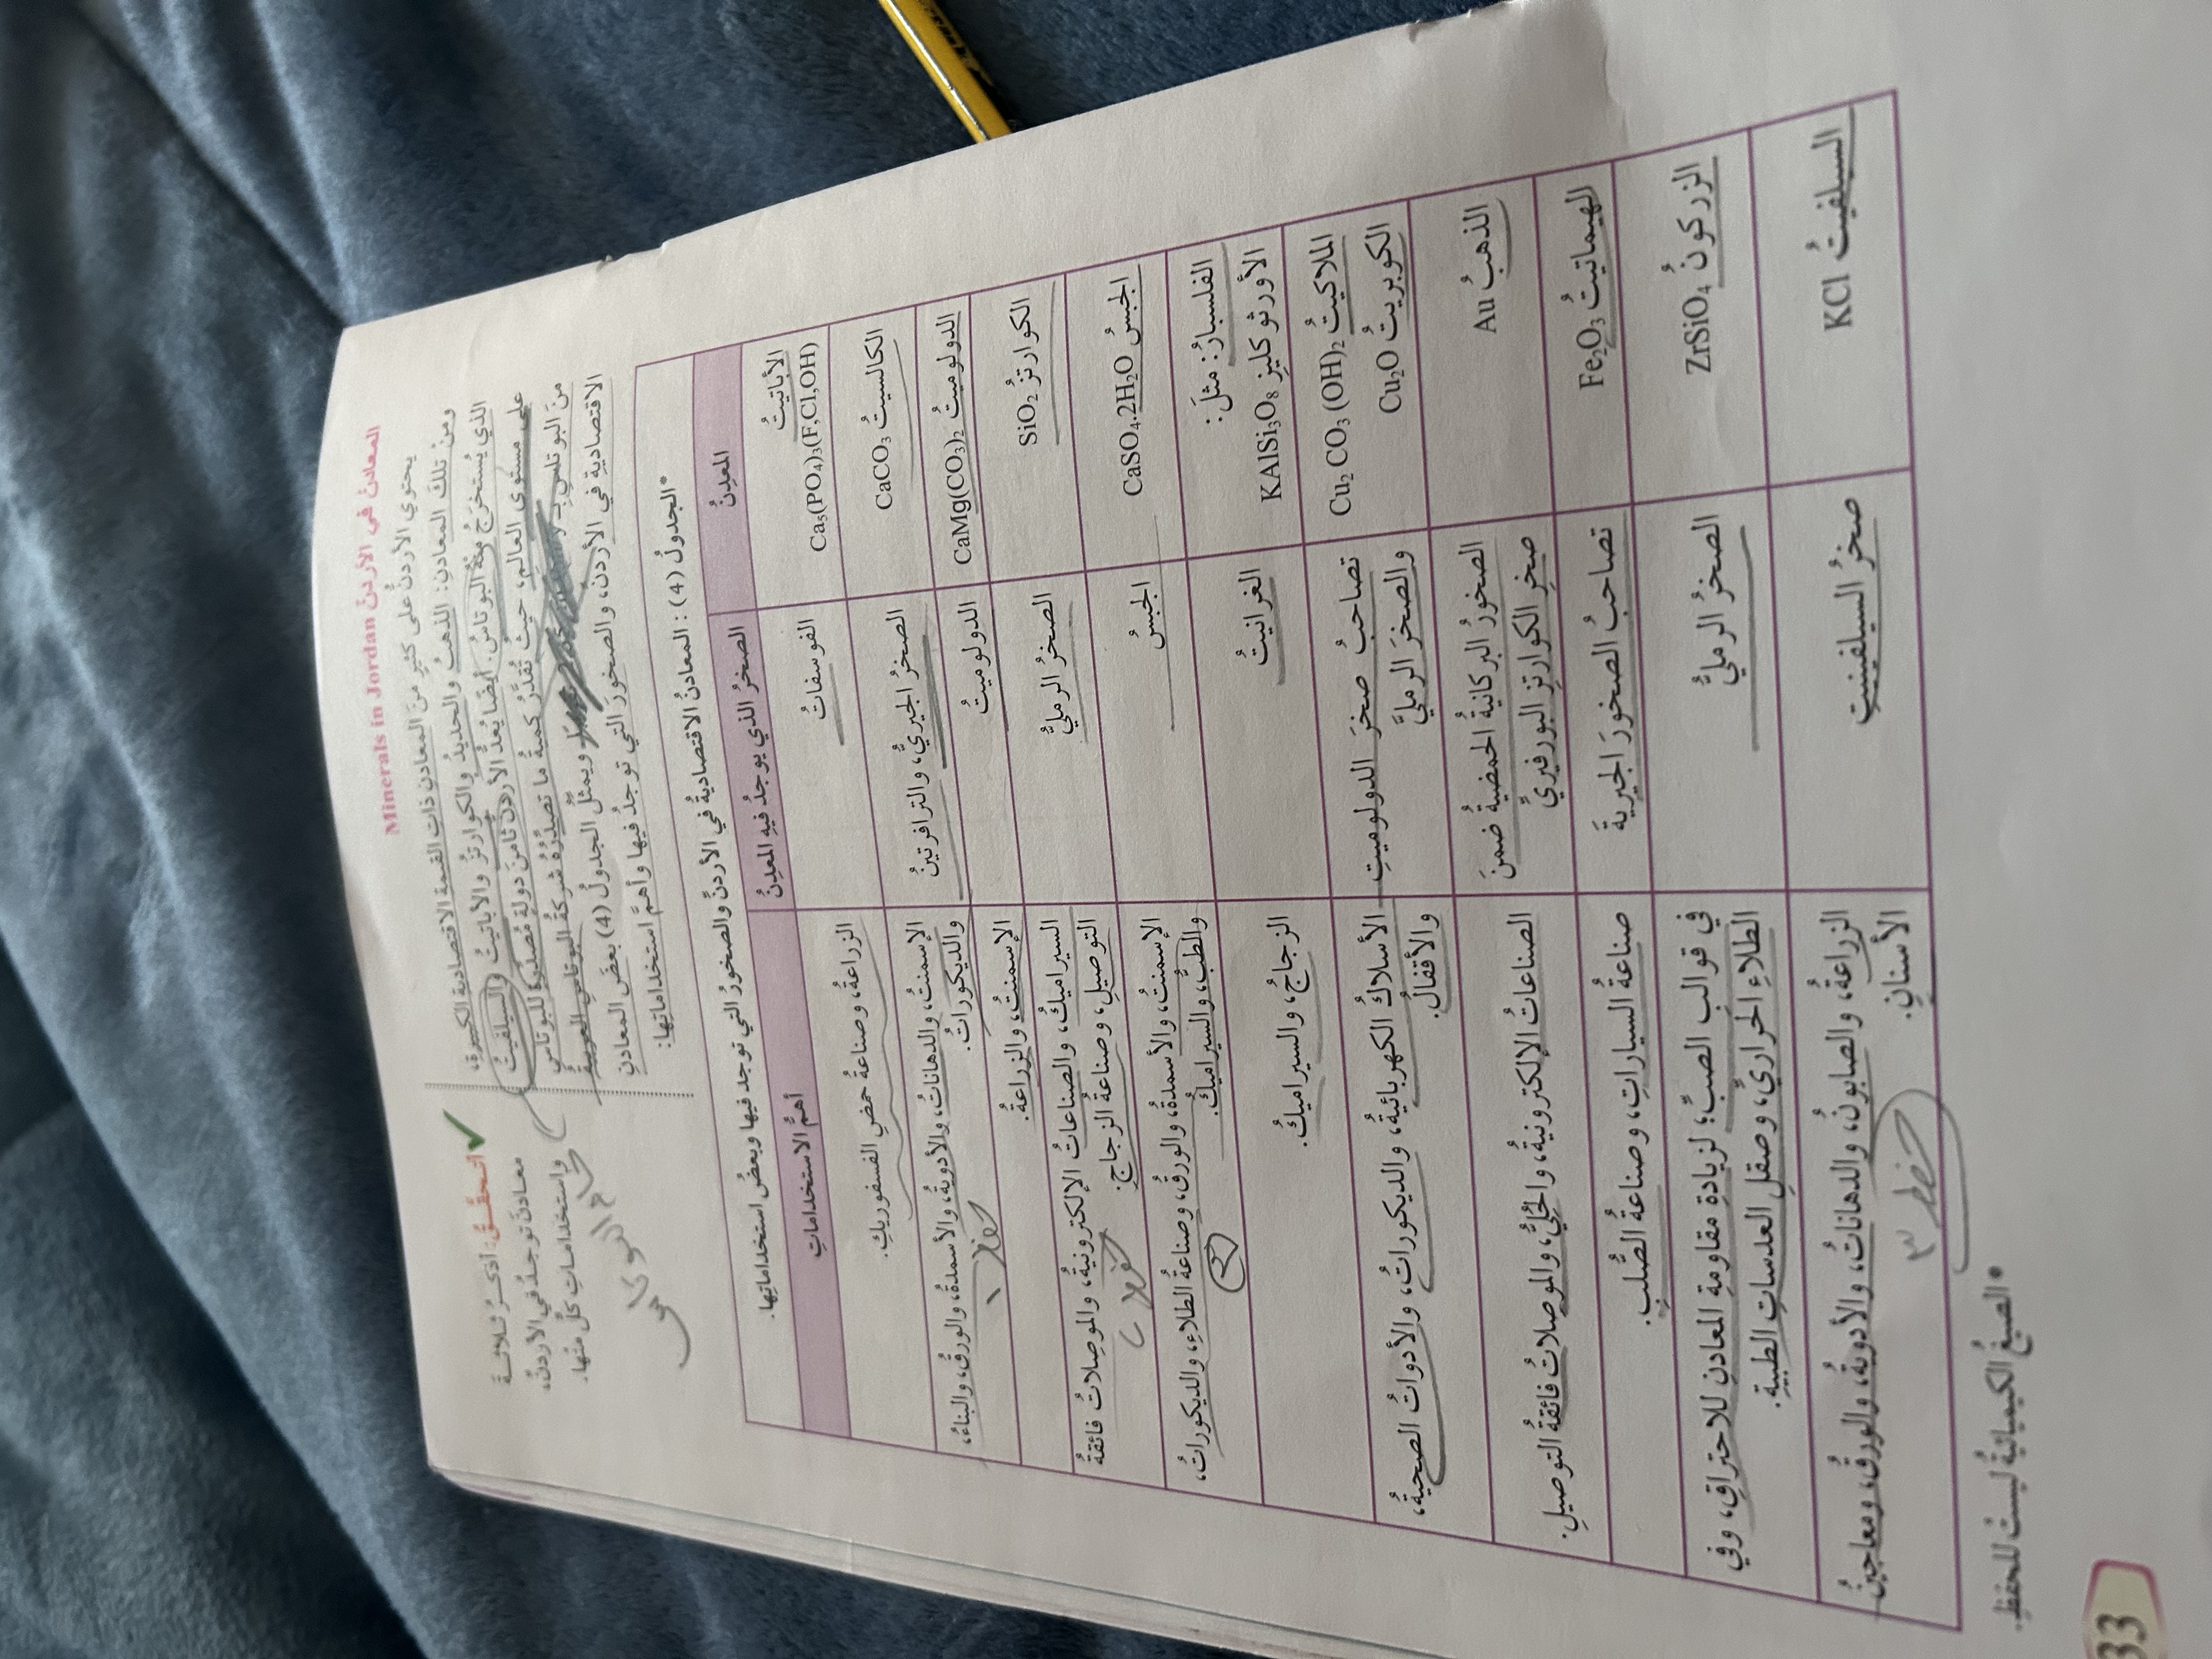 المعادنُ في الأردنِّ Minerals in Jordan
يحتوي الأردنُّ على كثيرٍ منَ المعادنِ ذاتِ القيمةِ الاقتصاديةِ الكبيرةِ،
ومن تلكَ المعادنِ: الذهبُ والحديدُ والكوارتزُ والأباتيتُ والسيلفيتُ
الذي يُستخرَجُ منهُ البوتاسُ. أيضًا يُعدُّ الأردنُّ ثامنَ دولةٍ مُصدِّرةٍ للبوتاسِ
على مستوى العالمِ، حيثُ تُقدَّرُ كميةُ ما تصدّرُهُ شركةُ البوتاسِ العربيةُ
منَ البوتاسِ بـ ويمثّلُ الجدولُ (4) بعضَ المعادنِ
الاقتصاديةِ في الأردنِّ، والصخورَ التي توجدُ فيها وأهمَّ استخداماتِها:
✓ أتحقَّقُ: أذكرُ ثلاثةَ
معادنَ توجدُ في الأردنِّ،
واستخداماتِ كلٍّ منها.
*الجدولُ (4): المعادنُ الاقتصاديةُ في الأردنِّ والصخورُ التي توجد فيها وبعضُ استخداماتِها.
المعدِنُ | الصخرُ الذي يوجدُ فيهِ المعدِنُ | أهمُّ الاستخداماتِ
الأباتيتُ | الفوسفاتُ | الزراعةُ، وصناعةُ حمضِ الفسفوريكِ.
Ca₅(PO₄)₃(F,Cl,OH)
الكالسيتُ CaCO₃ | الصخرُ الجيريُّ، والترافرتينُ | الإسمنتُ، والدهاناتُ، والأدويةُ، والأسمدةُ، والورقُ، والبناءُ،
والديكوراتُ.
الدولوميتُ CaMg(CO₃)₂ | الدولوميتُ | الإسمنتُ، والزراعةُ.
الكوارتزُ SiO₂ | الصخرُ الرمليُّ | السيراميكُ، والصناعاتُ الإلكترونيةُ، والموصلاتُ فائقةُ
التوصيلِ، وصناعةُ الزجاجِ.
الجبسُ CaSO₄.2H₂O | الجبسُ | الإسمنتُ، والأسمدةُ، والورقُ، وصناعةُ الطلاءِ، والديكوراتُ،
والطبُّ، والسيراميكُ.
الفلسبارُ: مثلَ: | الغرانيتُ | الزجاجُ، والسيراميكُ.
الأورثوكليز KAlSi₃O₈
الملاكيتُ Cu₂ CO₃ (OH)₂ | تصاحبُ صخرَ الدولوميتِ | الأسلاكُ الكهربائيةُ، والديكوراتُ، والأدواتُ الصحيةُ،
الكوبريتُ Cu₂O | والصخرَ الرمليَّ | والأقفالُ.
الذهبُ Au | الصخورُ البركانيةُ الحمضيةُ ضمنَ | الصناعاتُ الإلكترونيةُ، والحُليُّ، والموصلاتُ فائقةُ التوصيلِ.
صخرِ الكوارتزِ البورفيريِّ
الهيماتيتُ Fe₂O₃ | تصاحبُ الصخورَ الجيريةَ | صناعةُ السياراتِ، وصناعةُ الصُّلبِ.
الزركونُ ZrSiO₄ | الصخرُ الرمليُّ | في قوالبِ الصبِّ؛ لزيادةِ مقاومةِ المعادنِ للاحتراقِ، وفي
الطلاءِ الحراريِّ، وصقلِ العدساتِ الطبيةِ.
السلفيتُ KCl | صخرُ السيلفينيتِ | الزراعةُ، والصابونُ، والدهاناتُ، والأدويةُ، والورقُ، ومعاجينُ
الأسنانِ.
حفظ ١
حفظ ٢
٢
حفظ ٣
*الصيغُ الكيميائيةُ ليستْ للحفظِ.
33